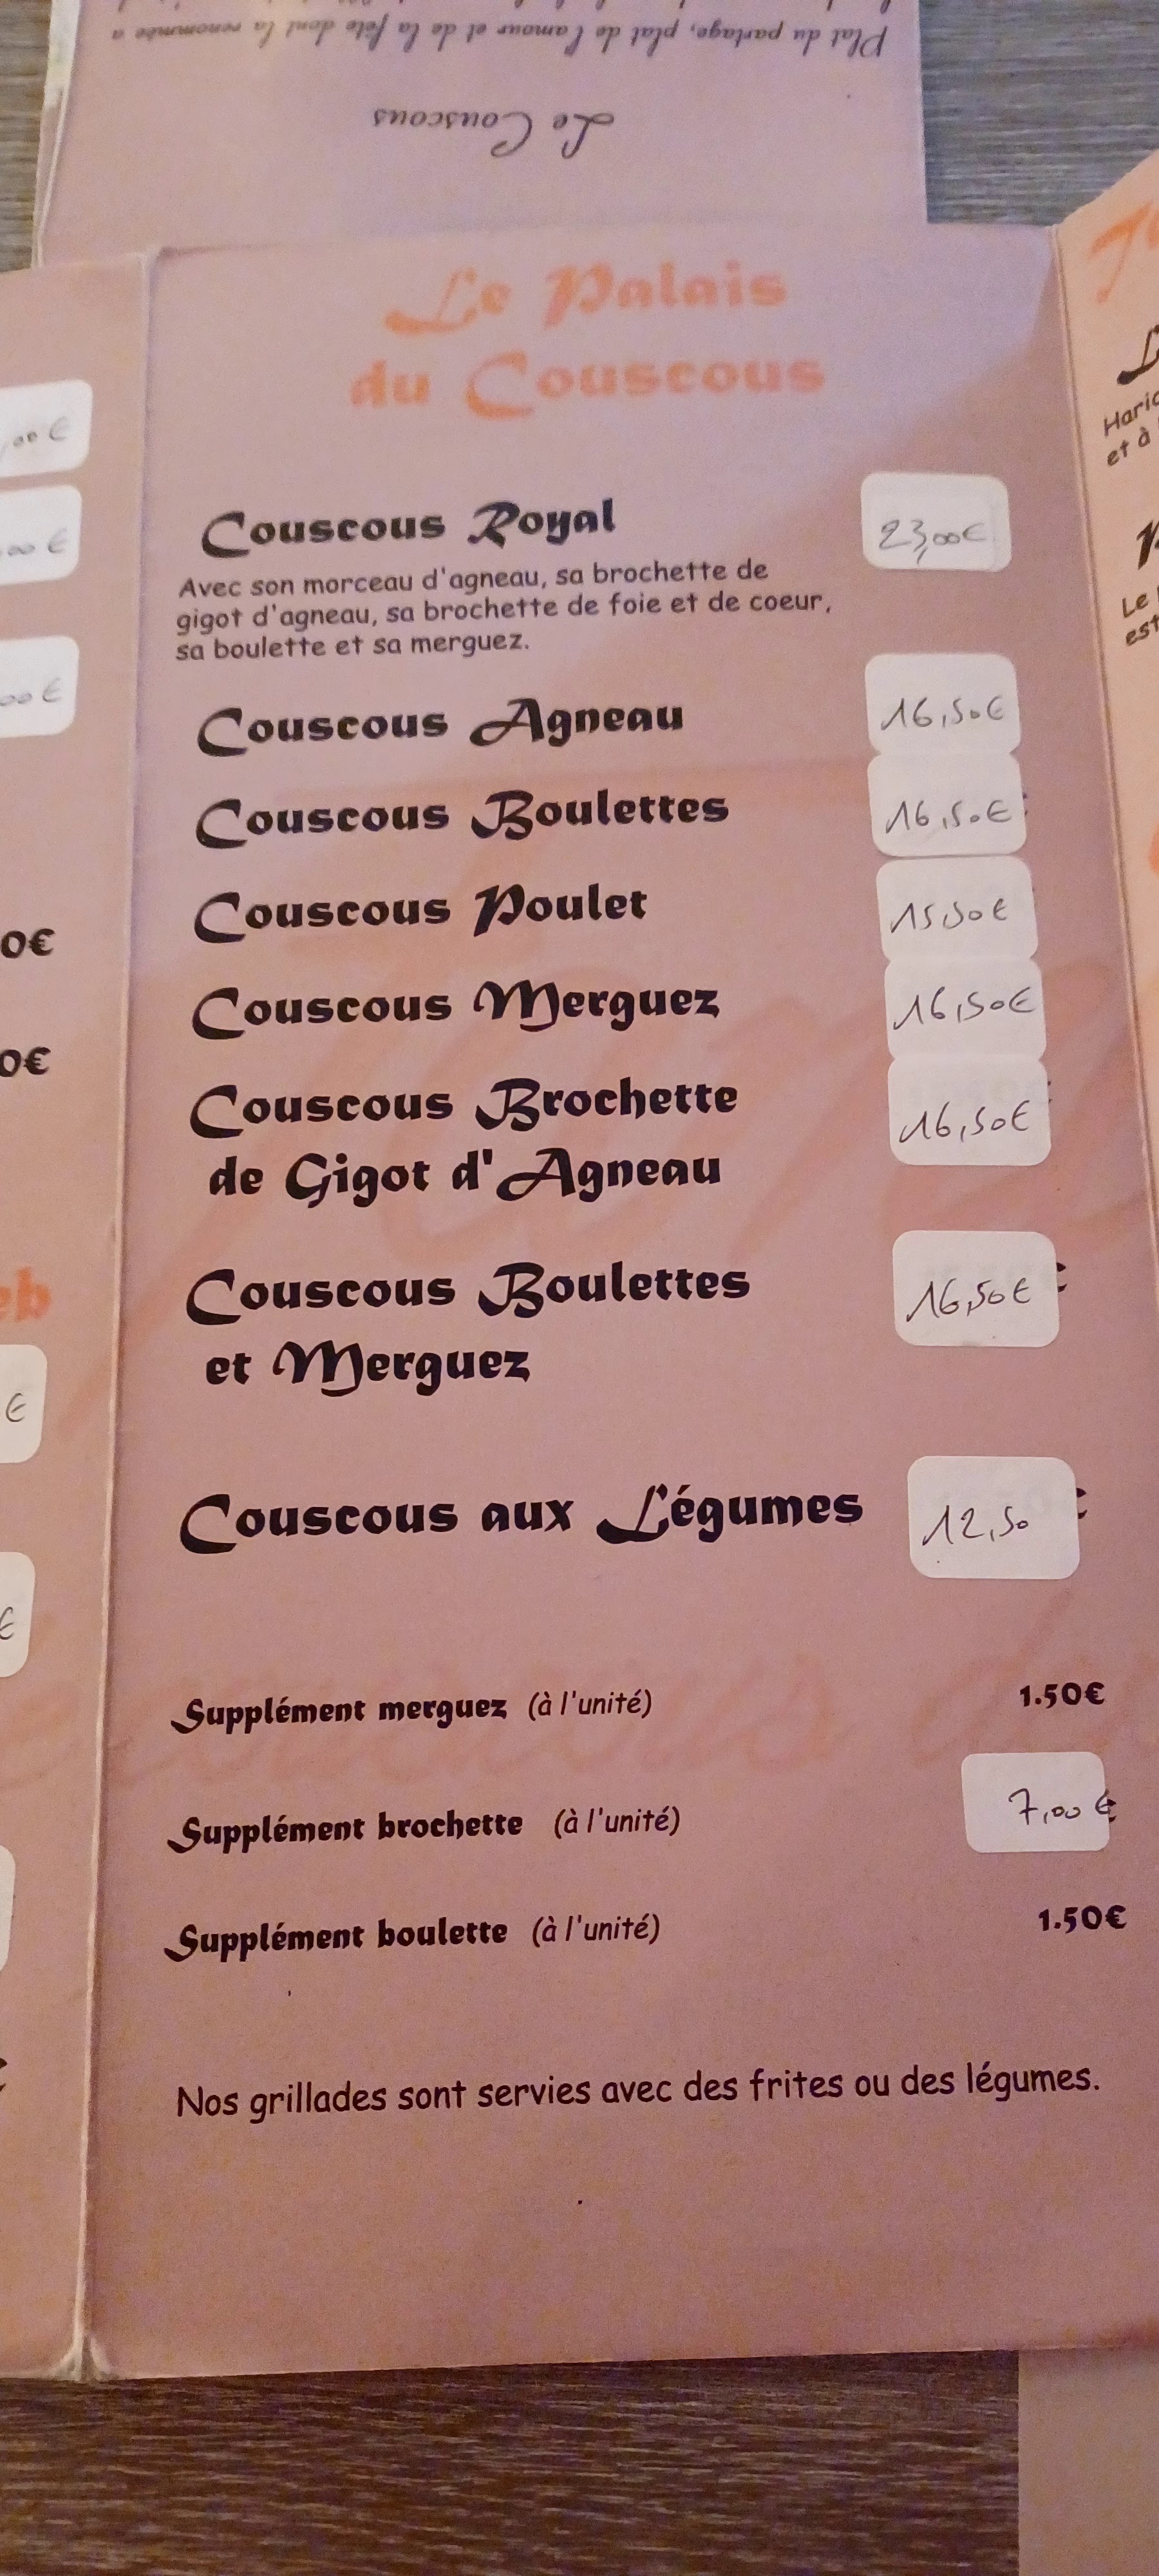 Plat du partage, plat de l'amour et de la fête dont la renommée a
Le Couscous
Le Palais
du Couscous
Couscous Royal 23,00€
Avec son morceau d'agneau, sa brochette de
gigot d'agneau, sa brochette de foie et de coeur,
sa boulette et sa merguez.
Couscous Agneau 16,50€
Couscous Boulettes 16,50€
Couscous Poulet 15,50€
Couscous Merguez 16,50€
Couscous Brochette 16,50€
de Gigot d'Agneau
Couscous Boulettes 16,50€
et Merguez
Couscous aux Légumes 12,50
Supplément merguez (à l'unité) 1.50€
Supplément brochette (à l'unité) 7,00 €
Supplément boulette (à l'unité) 1.50€
Nos grillades sont servies avec des frites ou des légumes.
,00 €
,00 €
,00 €
0€
0€
eb
€
€
et à
Le
est